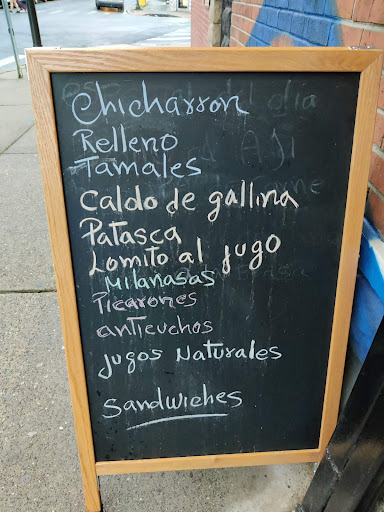 Chicharron
Relleno
Tamales
Caldo de gallina
Patasca
Lomito al jugo
Milanasas
Picarones
anticuchos
jugos Naturales
Sandwiches